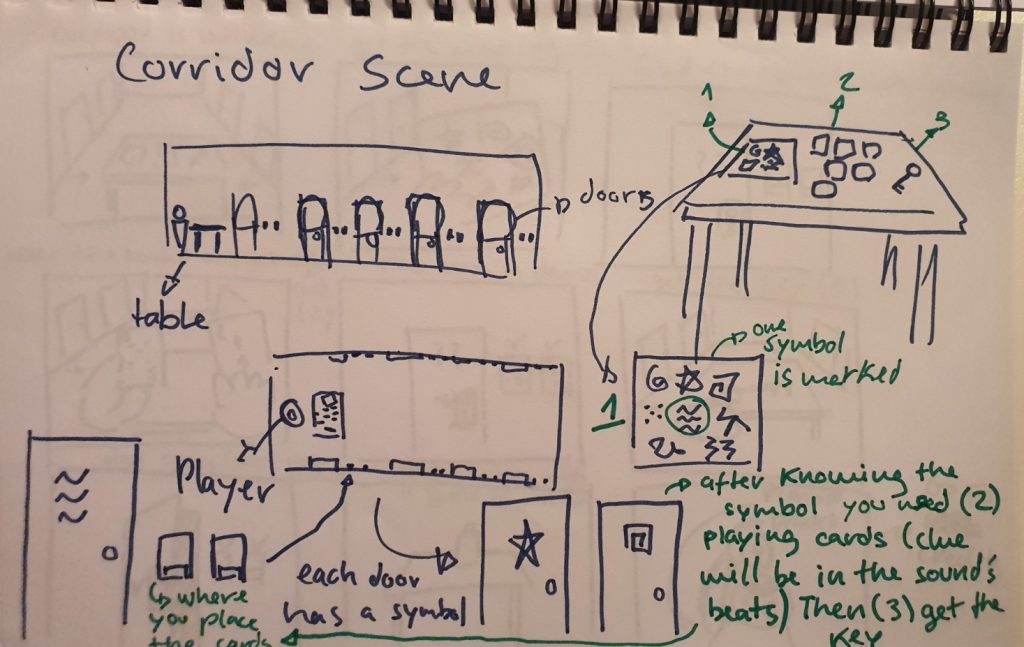 Corridor Scene
1
2
3
doors
table
one
symbol
is marked
1
Player
after knowing the
symbol you need (2)
playing cards (clue
will be in the sound's
beats) Then (3) get the
key
each door
has a symbol
where
you place
the cards